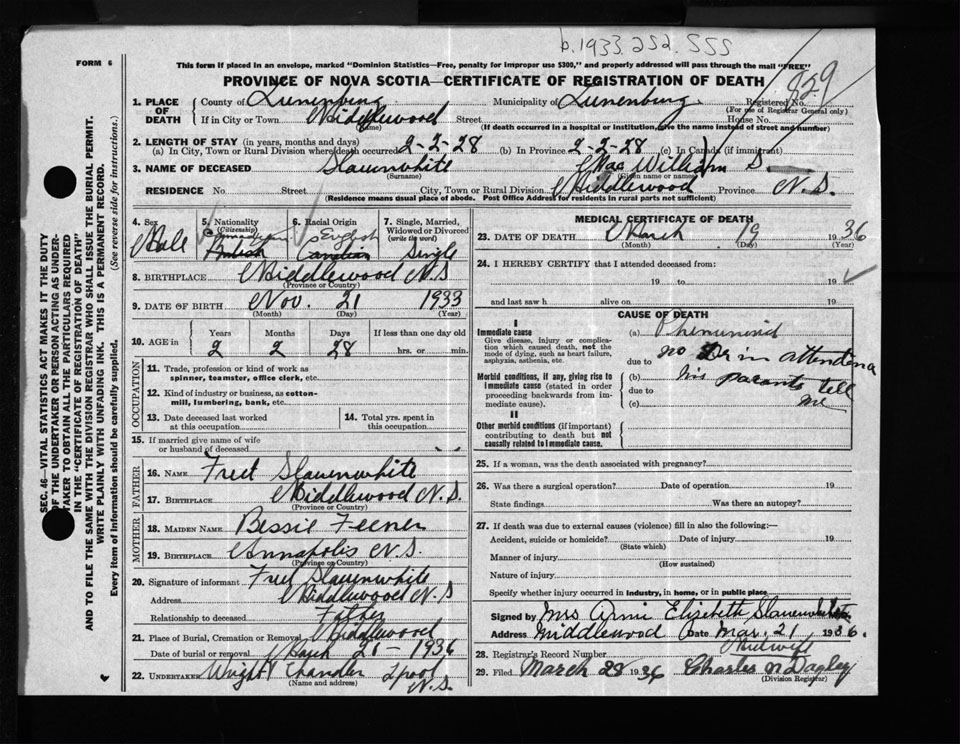 b.1933.252.555
829
FORM 6
This form if placed in an envelope, marked "Dominion Statistics—Free, penalty for improper use $300," and properly addressed will pass through the mail "FREE"
PROVINCE OF NOVA SCOTIA—CERTIFICATE OF REGISTRATION OF DEATH
1. PLACE OF DEATH County of Lunenburg Municipality of Lunenburg Registered No.
(For use of Registrar General only)
If in City or Town Middlewood Street House No.
(Name) (If death occurred in a hospital or institution, give the name instead of street and number)
2. LENGTH OF STAY (in years, months and days)
(a) In City, Town or Rural Division where death occurred 2-2-28 (b) In Province 2-2-28 (c) In Canada (if immigrant)
3. NAME OF DECEASED Slauenwhite Mac William S.
(Surname) (Given name or names)
RESIDENCE No Street City, Town or Rural Division Middlewood Province N.S.
(Residence means usual place of abode. Post Office Address for residents in rural parts not sufficient)
4. Sex
Male
5. Nationality (Citizenship)
Canadian
British
6. Racial Origin
English
Canadian
7. Single, Married, Widowed or Divorced (write the word)
Single
8. BIRTHPLACE Middlewood N.S
(Province or Country)
9. DATE OF BIRTH Nov. 21 1933
(Month) (Day) (Year)
10. AGE in Years Months Days If less than one day old
2 2 28 hrs. or min.
OCCUPATION
11. Trade, profession or kind of work as spinner, teamster, office clerk, etc.
12. Kind of industry or business, as cotton-mill, lumbering, bank, etc.
13. Date deceased last worked at this occupation
14. Total yrs. spent in this occupation
15. If married give name of wife or husband of deceased
FATHER
16. NAME Fred Slauenwhite
17. BIRTHPLACE Middlewood N.S.
(Province or Country)
MOTHER
18. MAIDEN NAME Bessie Feener
19. BIRTHPLACE Annapolis N.S.
(Province or Country)
20. Signature of informant Fred Slauenwhite
Address Middlewood N.S
Relationship to deceased Father
21. Place of Burial, Cremation or Removal Middlewood
Date of burial or removal March 21-1936
22. UNDERTAKER Wright Chandler Lpool
(Name and address) N.S.
MEDICAL CERTIFICATE OF DEATH
23. DATE OF DEATH March 19 1936
(Month) (Day) (Year)
24. I HEREBY CERTIFY that I attended deceased from:
19 to 19
and last saw h alive on 19
CAUSE OF DEATH
I
Immediate cause
Give disease, injury or complication which caused death, not the mode of dying, such as heart failure, asphyxia, asthenia, etc.
Morbid conditions, if any, giving rise to immediate cause (stated in order proceeding backwards from immediate cause).
II
Other morbid conditions (if important) contributing to death but not causally related to immediate cause.
(a)
due to no Dr in attendena
(b) his parants tell
due to me
(c)
25. If a woman, was the death associated with pregnancy?
26. Was there a surgical operation? Date of operation 19
State findings Was there an autopsy?
27. If death was due to external causes (violence) fill in also the following:—
Accident, suicide or homicide? Date of injury 19
(State which)
Manner of injury
(How sustained)
Nature of injury
Specify whether injury occurred in industry, in home, or in public place
Signed by Mrs Elizibeth Slauenwhite
Address Middlewood Date Mar. 21, 1936.
Midwife
28. Registrar's Record Number
29. Filed March 28 1936 Charles N Dagley
(Division Registrar)
SEC. 46—VITAL STATISTICS ACT MAKES IT THE DUTY
OF THE UNDERTAKER OR PERSON ACTING AS UNDER-
TAKER TO OBTAIN ALL THE PARTICULARS REQUIRED
IN THE "CERTIFICATE OF REGISTRATION OF DEATH"
AND TO FILE THE SAME WITH THE DIVISION REGISTRAR WHO SHALL ISSUE THE BURIAL PERMIT.
WRITE PLAINLY WITH UNFADING INK. THIS IS A PERMANENT RECORD.
Every item of information should be carefully supplied. (See reverse side for instructions.)